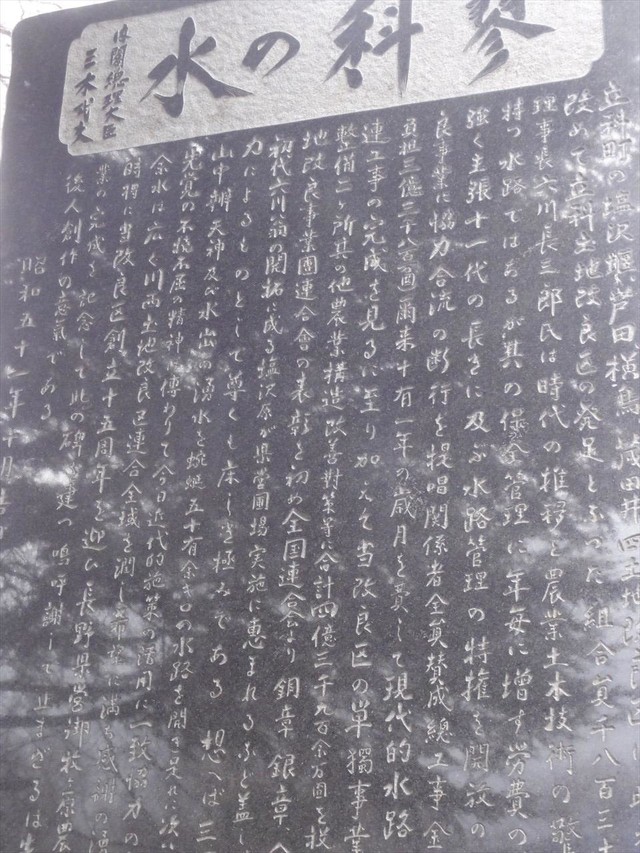 蓼科の水
内閣総理大臣
三木武夫
立科町の塩沢堰芦田横鳥茂田井四土地改良区
改めて立科土地改良区の発足となった組合員千八百三十
理事長六川長三郎氏は時代の推移と農業土木技術の
持つ水路ではあるが其の保全管理に年毎に増す労費の
強く主張十一代の長きに及ぶ水路管理の特権を開放の
良事業に協力合流の断行を提唱関係者全員賛成總工事金
負担三億二千八百萬爾来十有一年の歳月を費して現代的水路
連工事の完成を見るに至り加えて当改良区の単獨事業
整備二ヶ所其の他農業構造改善對策等に合計四億三千九百余万円を投
地改良事業團連合會の表彰を初め全国連合会より銅章銀章
初代六川翁の開拓に成る塩沢原が県営圃場実施に恵まれるなど蓋し
力によるものとして尊くも床しき極みである 想へば三
山中辨天神及び水出の湧水を蜿蜒五十有余キロの水路を開き
覚の不撓不屈の精神伝わりて今日近代的施策の活用に一致協力の
余水は広く川西土地改良区連合全域を潤し希望に満ち感謝の
時将に当改良区創立十五周年を迎ひ長野県営御牧原農
業の完成を記念して此の碑を建つ 嗚呼謝して止まざるは
後人創作の意氣である
昭和五十一年十月